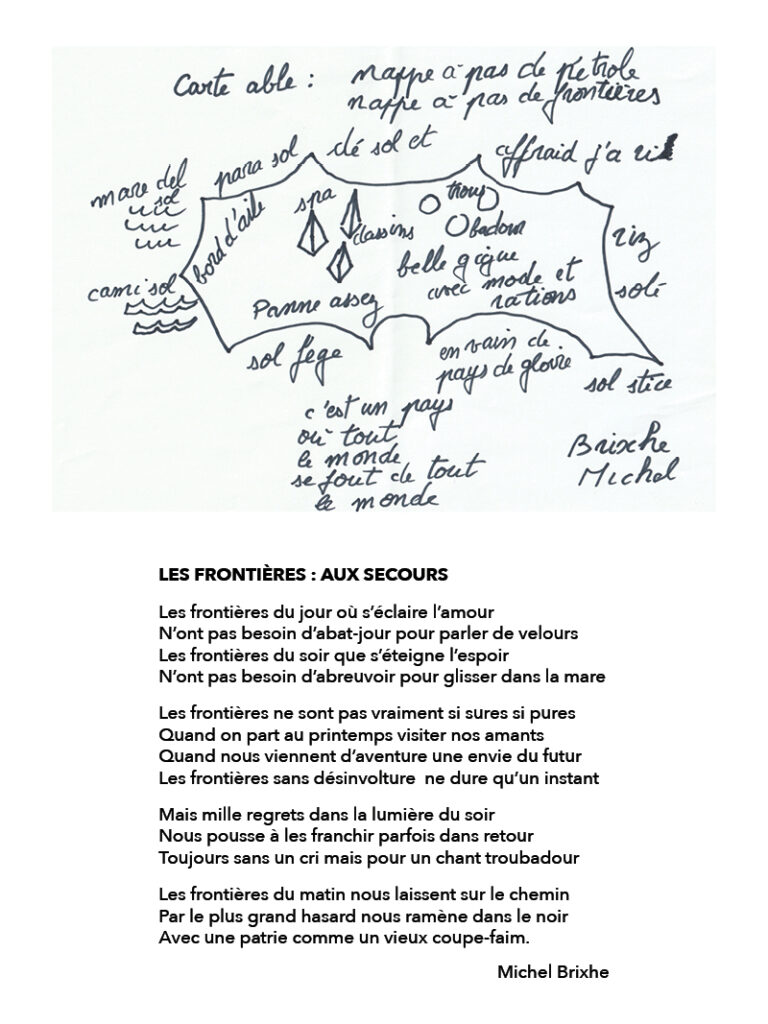 Carte able : nappe à pas de pétrole
nappe à pas de frontières
mare del
sol
para sol
clé sol et
affraid j'a ri
bord d'aile
spa
dassins
trous
badour
riz
solé
cami sol
belle gigue
avec mode et
rations
Panne assez
sol fège
en vain de
pays de gloire
sol stice
c'est un pays
où tout
le monde
se fout de tout
le monde
Brixhe
Michel
LES FRONTIÈRES : AUX SECOURS
Les frontières du jour où s’éclaire l’amour
N’ont pas besoin d’abat-jour pour parler de velours
Les frontières du soir que s’éteigne l’espoir
N’ont pas besoin d’abreuvoir pour glisser dans la mare
Les frontières ne sont pas vraiment si sures si pures
Quand on part au printemps visiter nos amants
Quand nous viennent d’aventure une envie du futur
Les frontières sans désinvolture  ne dure qu’un instant
Mais mille regrets dans la lumière du soir
Nous pousse à les franchir parfois dans retour
Toujours sans un cri mais pour un chant troubadour
Les frontières du matin nous laissent sur le chemin
Par le plus grand hasard nous ramène dans le noir
Avec une patrie comme un vieux coupe-faim.
Michel Brixhe